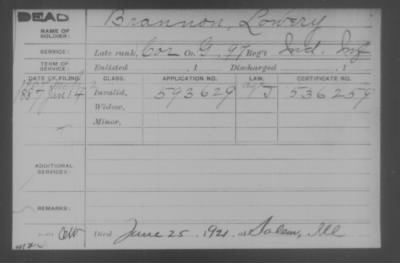 DEAD
NAME OF SOLDIER: Brannon, Lowery
SERVICE: Late rank, Cor Co. G, 97 Reg't Ind. Inf
TERM OF SERVICE: Enlisted , 1 Discharged , 1
DATE OF FILING. CLASS. APPLICATION NO. LAW. CERTIFICATE NO.
1887 Invalid, 593629 J 536259
Widow,
Minor,
ADDITIONAL SERVICES:
REMARKS:
Died June 25, 1921, at Salem, Ill